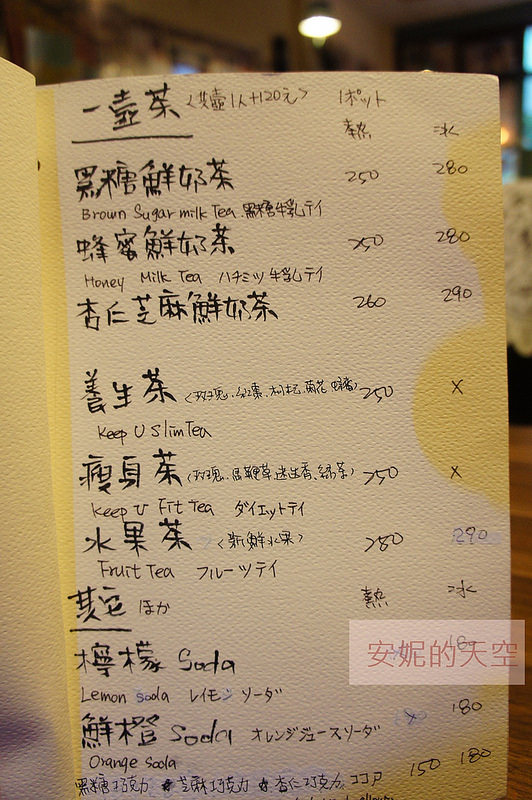 一壺茶 <共壺1人+120元> 1ポット
熱 冰
黑糖鮮奶茶 250 280
Brown Sugar milk Tea 黑糖牛乳テイ
蜂蜜鮮奶茶 250 280
Honey Milk Tea ハチミツ牛乳テイ
杏仁芝麻鮮奶茶 260 290
養生茶 (玫瑰、紅棗、枸杞、菊花、蜂蜜) 250 x
Keep U Slim Tea
瘦身茶 (玫瑰、馬鞭草、迷迭香、綠茶) 250 x
Keep U Fit Tea ダイエットテイ
水果茶 <新鮮水果> 280 290
Fruit Tea フルーツテイ
其它 ほか 熱 冰
檸檬 Soda 180
Lemon Soda レイモン ソーダ
安妮的天空
鮮橙 Soda オレンジジュースソーダ x 180
Orange Soda
黑糖巧克力 芝麻巧克力 杏仁巧克力 ココア 150 180